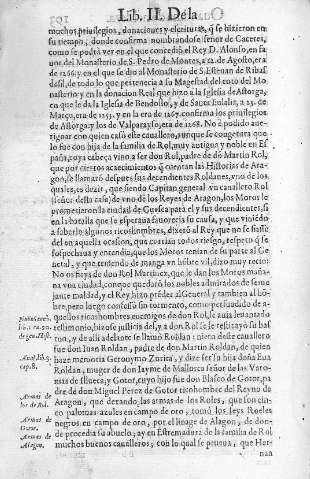 Lib. II. De la
muchos priuilegios, donaciones y escrituras, q̃ se hizieron en
su tiempo, donde confirma nombrandose señor de Caceres,
como se podrà ver en el que concediò el Rey D. Alonso, en fa
uor del Monasterio de S. Pedro de Montes, a 12. de Agosto, era
de 1266. y en el que se dio al Monasterio de S. Esteuan de Ribas
desil, de todo lo que pertenecia a la Magestad del coto del Mo
nasterio y en la donacion Real que hizo a la Iglesia de Astorga,
en que le da la Iglesia de Bendollo, y de Santa Eulalia, a 23. de
Março, era de y en la era de 1267. confirma los priuilegios
de Astorga y los de Valparayso, era de 1268. No è podido aue-
riguar con quien casò este cauallero, aunque se congetura que
lo fue con hija de la familia de Rol, muy antigua y noble en Es
paña, cuya cabeça vino a ser don Rol, padre de dõ Martin Rol,
que por ciertos acaecimientos q̃ cuentan las Historias de Ara-
gon, se llamarò despues sus decendientes Roldanes, vno de los
quales, es dezir, que siendo Capitan general vn cauallero Rol
(señor desta casa) de vno dè los Reyes de Aragon, los Moros le
prometieron la ciudad de Huesca para èl y sus decendientes, si
en la batalla que se esperaua fauorecia su causa, y que viniẽdo
a saberlo algunos ricos hombres, dixerõ al Rey que no se fiasse
del en aquella ocasion, que corrian todos riesgo, respeto q̃ se
sospechaua y entendia, que los Moros tenian de su parte al Ge
neral, y que teniendo de manga vn hõbre vil, dixo muy rezio:
No os fieys de don Rol Martinez, que le dan los Moros maña-
na vna ciudad, conque quedarõ los nobles admirados de seme
jante maldad, y el Rey hizo prẽder al General y tambien al hõ-
bre, pero luego confessò sin tormento, como persuadido de a-
quellos ricos hombres enemigos de don Rol, le auia leuantado
testimonio, hizose justicia del, y a don Rol se le restituyò su bas
ton, y de alli adelante se llamò Roldan: nieto deste cauallero
fue don Iuan Roldan, padre de don Martin Roldan, de quien
haze memoria Geronymo Zurita, y dize ser su hija doña Eua
Roldan, muger de don Iayme de Mallorca señor de las Varo-
nias de Illueca, y Gotor, cuyo hijo fue don Blasco de Gotor, pa
dre de dõn Miguel Perez de Gotor ricohombre del Reyno de
Aragon, que dexando, las armas de los Roles, que son cin-
co palomas azules en campo de oro, tomò los seys Roeles
negros en campo de oro, por el linage de Alagon, de don-
de procedia su abuelo; ay en Estremadura de la familia de Rol
muchos buenos caualleros; con lo qual se prueua, que Her-
nan
lib. 1. ca. 20.
Anal. lib. 3.
cap. 8.
Armas de
los de Rol.
Armas de
Gotor.
Armas de
Alagon.